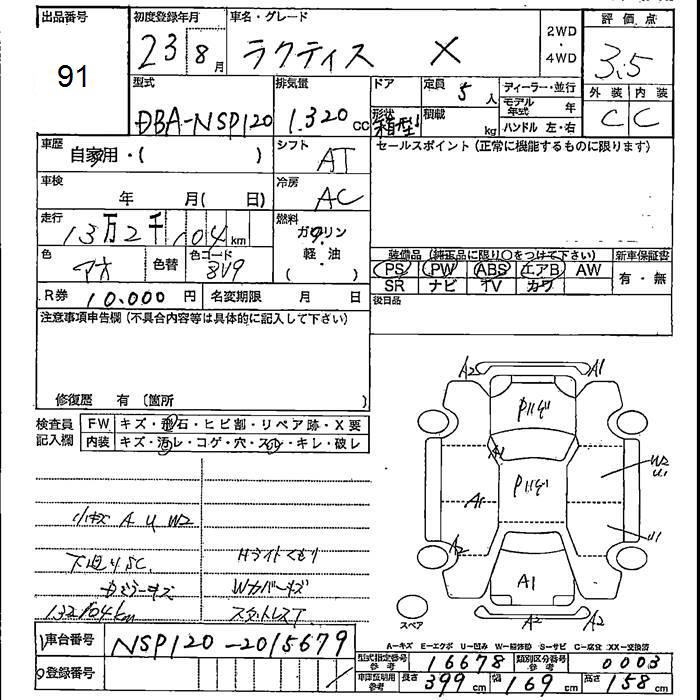 出品番号 初度登録年月 車名・グレード 評価点
91 23 8月 ラクティス X 2WD・4WD 3.5
型式 排気量 ドア 定員 5人 ディーラー・並行 外装 内装
DBA-NSP120 1.320cc 形状 箱型 積載 kg モデル年式 年 C C
ハンドル 左・右
車歴 自家用・( ) シフト AT セールスポイント(正常に機能するものに限ります)
車検 年 月( 日) 冷房 AC
走行 13万2千104km 燃料 ガソリン 軽・油 ( ・ )
色 アオ 色替 色コード 8V9
装備品(純正品に限り○をつけて下さい) 新車保証書
PS PW ABS エアB AW 有・無
SR ナビ TV カワ
R券 10,000円 名変期限 月 日 後日品
注意事項申告欄(不具合内容等は具体的に記入して下さい)
修復歴 有(箇所 )
検査員記入欄 FW キズ・飛石・ヒビ割・リペア跡・X要
内装 キズ・汚レ・コゲ・穴・スレ・キレ・破レ
A2 A1
A1
A1
W2
U1
A2
U1
A1
A2 A2
スペア
小キズ A U W2
下廻りSC Hライトくもり
Wカバーキズ
132104km スタットレスT
A-キズ E-エクボ U-凹み W-補修跡 S-サビ C-腐食 XX-交換済
車台番号 NSP120-2015679
型式指定番号 参考 16678 類別区分番号 参考 0003
登録番号
車庫証明用 参考 長さ 399cm 幅 169cm 高さ 158cm